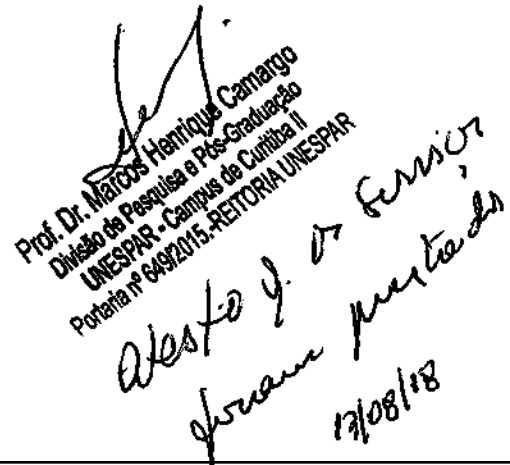 Prof. Dr. Marcos Henrique Camargo
Divisão de Pesquisa e Pós-Graduação
UNESPAR - Campus de Curitiba II
Portaria nº 649/2015.-REITORIA UNESPAR
Atesto q. os serviços
foram prestados
13/08/18